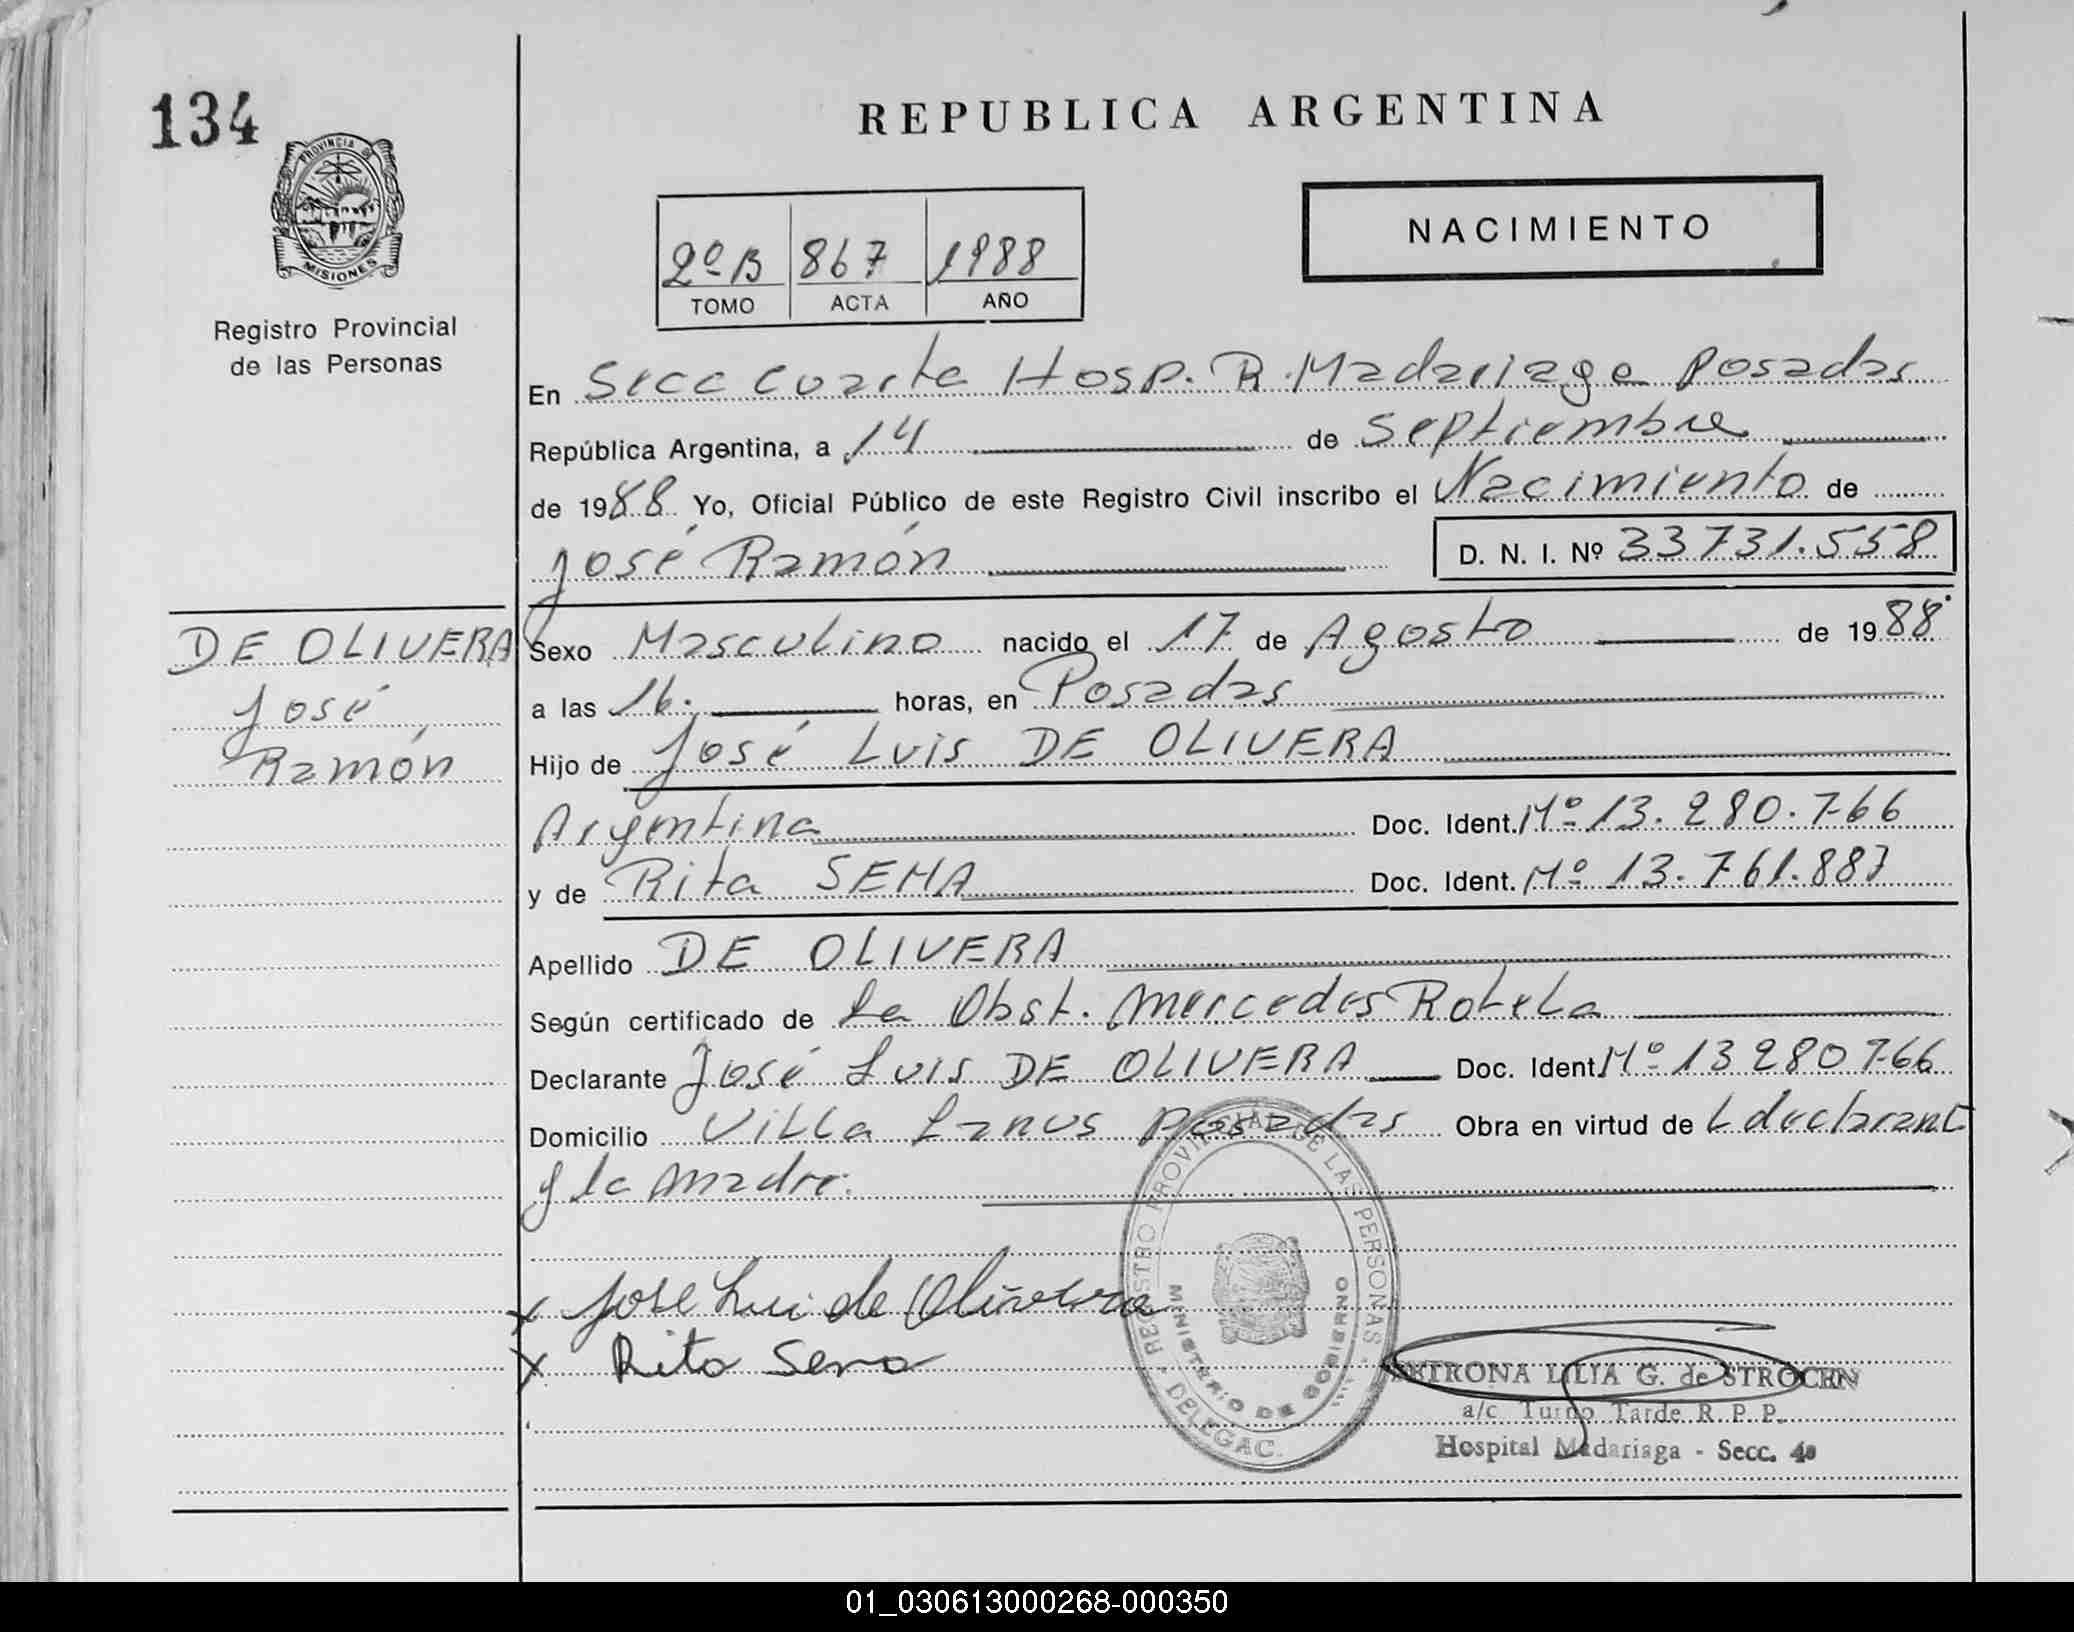 134
PROVINCIA DE
MISIONES
Registro Provincial
de las Personas
REPUBLICA ARGENTINA
2º B 867 1988
TOMO ACTA AÑO
NACIMIENTO
En Secc cuarta Hosp. R. Madariaga Posadas
República Argentina, a 14 de Septiembre
de 1988 Yo, Oficial Público de este Registro Civil inscribo el Nacimiento de
José Ramón D. N. I. Nº 33731.558
DE OLIVERA
José
Ramón
Sexo Masculino nacido el 17 de Agosto de 1988
a las 16. horas, en Posadas
Hijo de José Luis DE OLIVERA
Argentina Doc. Ident. Mº 13.280.766
y de Rita SENA Doc. Ident. Mº 13.761.887
Apellido DE OLIVERA
Según certificado de La Obst. Mercedes Rotela
Declarante José Luis DE OLIVERA Doc. Ident. Mº 13280766
Domicilio Villa Lanus Posadas Obra en virtud de L declarant
y la Madre.
x Jose Lui de Olivera
x Rita Sena
REGISTRO PROVINCIAL DE LAS PERSONAS
MINISTERIO DE GOBIERNO
DELEGAC.
PETRONA LILIA G. de STROCEN
a/c Turno Tarde R. P. P.
Hospital Madariaga - Secc. 4a
01_030613000268-000350